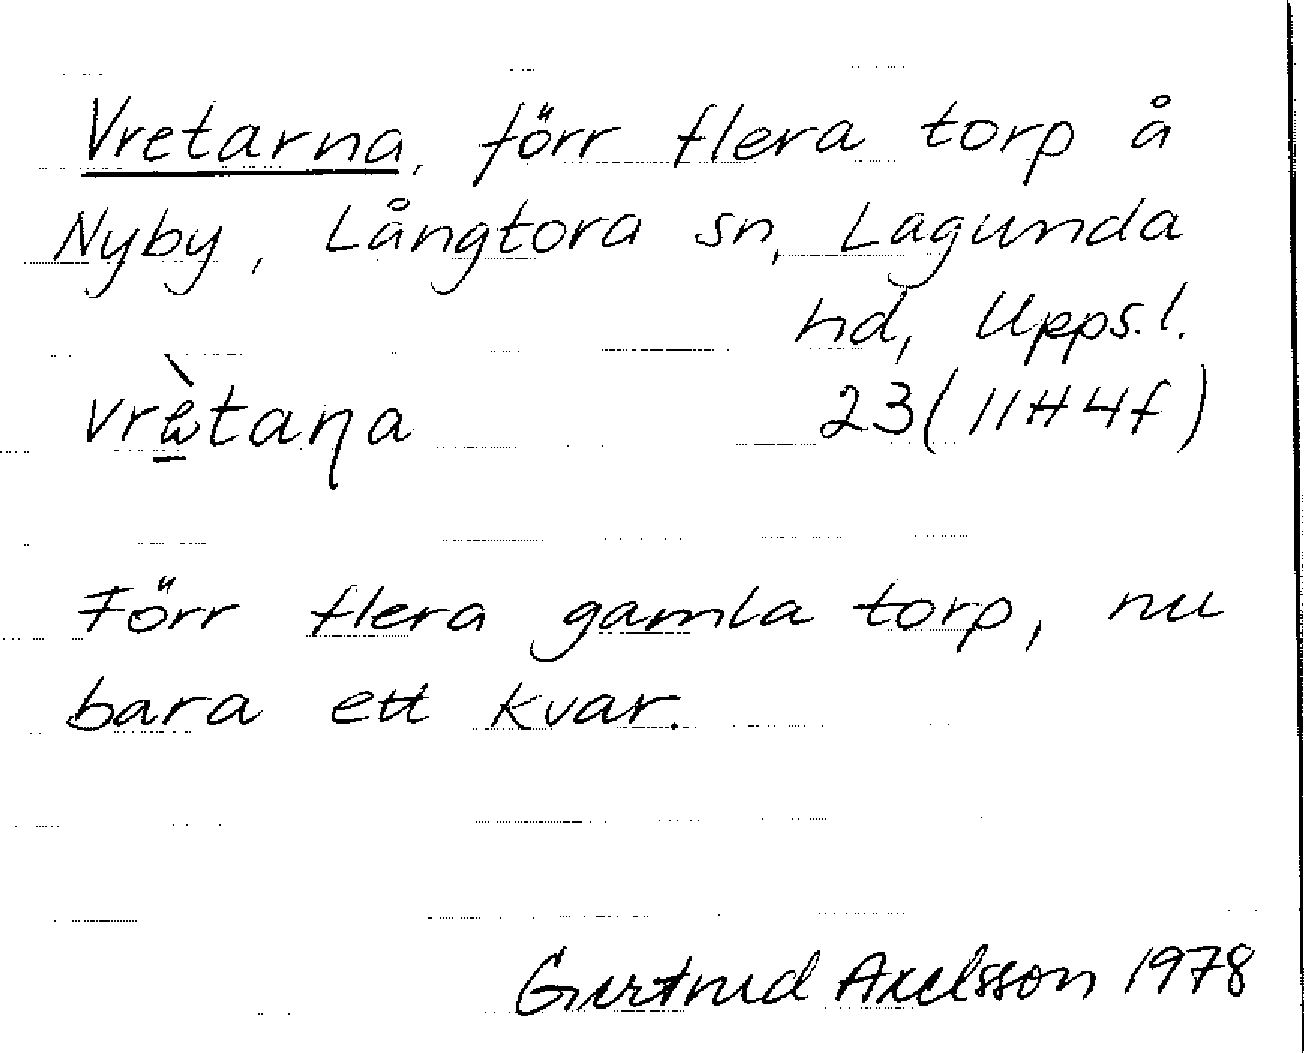 Vretarna, förr flera torp å
Nyby, Långtora sn, Lagunda
hd, Upps.l.
vrètaɳa 23(11H4f)
Förr flera gamla torp, nu
bara ett kvar.
Gertrud Axelsson 1978